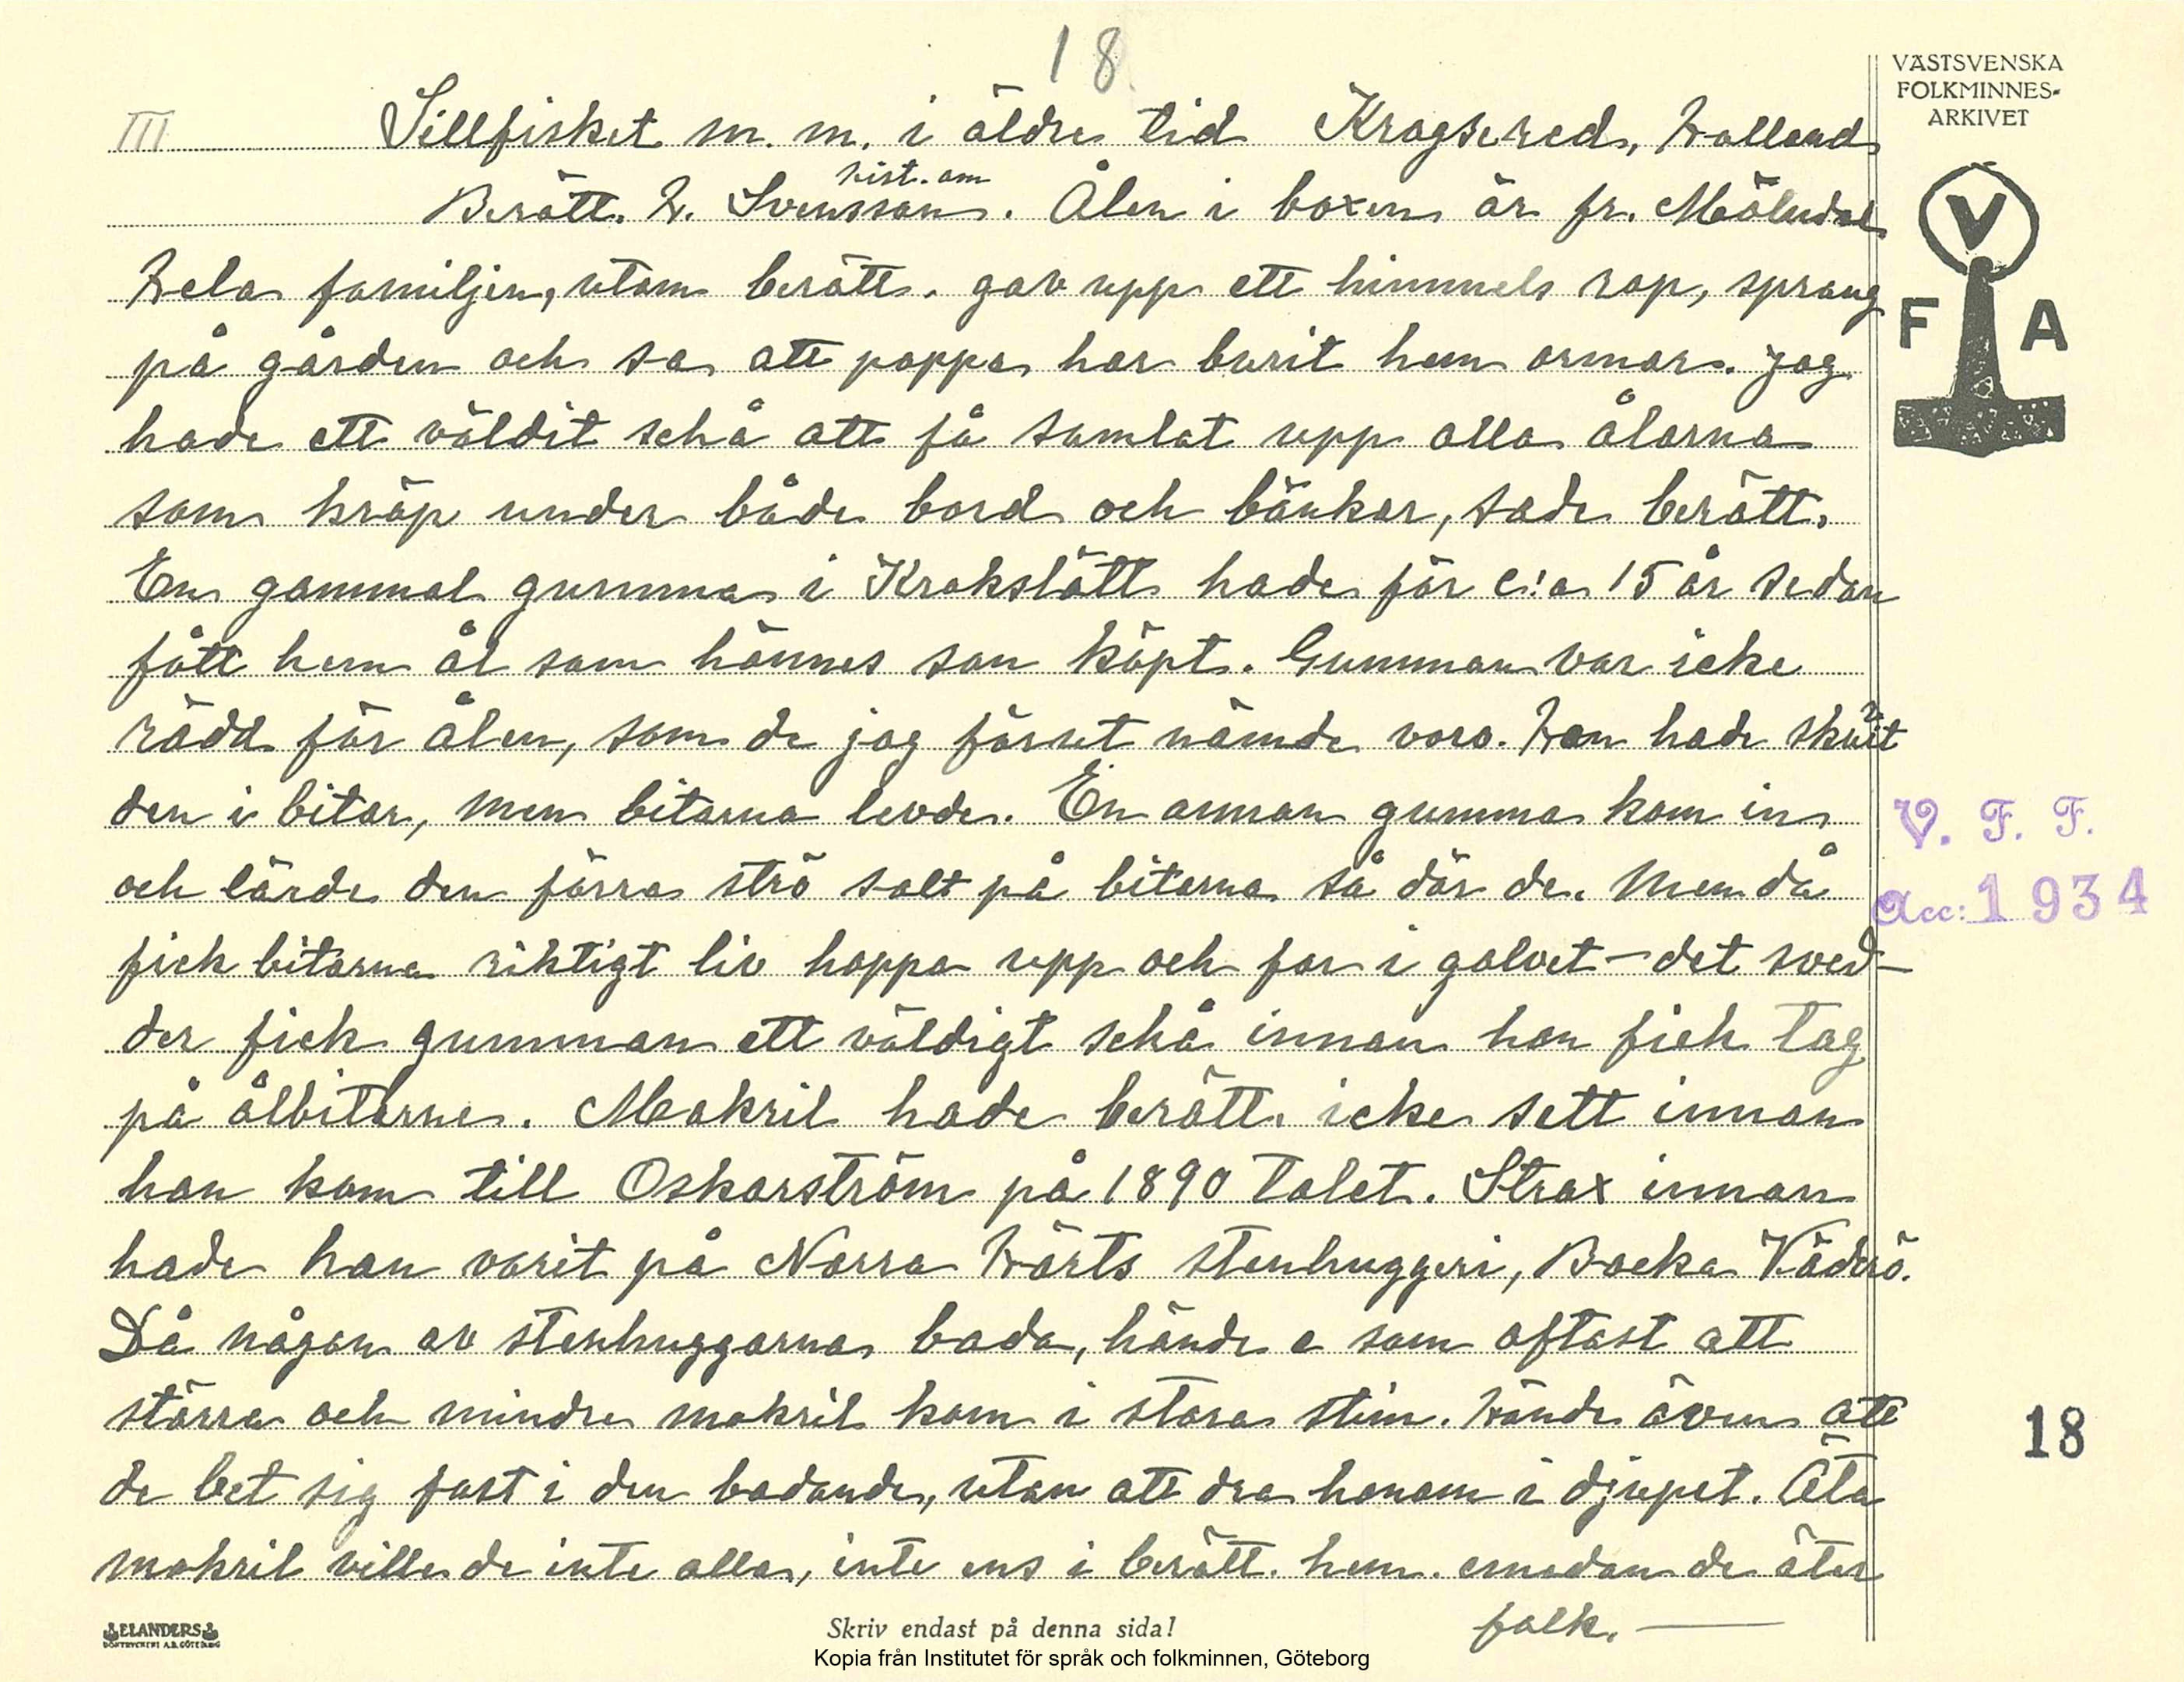 18
VÄSTSVENSKA
FOLKMINNES-
ARKIVET
III Sillfisket m. m. i äldre tid Krogsered, Halland
hist. om
Berätt. H. Svensson. Ålen i boxen är fr. Mölndal
Hela familjen, utom berätt. gav upp ett himmels rop, sprang
på gården och sa att pappa har burit hem ormar. Jag
hade ett väldit schå att få samlat upp alla ålarna
som kröp under både bord och bänkar, sade berätt.
En gammal gumma i Krokslätt hade för c:a 15 år sedan
fått hem ål som hännes son köpt. Gumman var icke
rädd för ålen, som de jag förut nämde voro. Hon hade skurit
den i bitar, men bitarna levde. En annan gumma kom in
och lärde den förra strö salt på bitarna så dör de. Men då
fick bitarna riktigt liv hoppa upp och for i golvet – det sved –
der fick gumman ett väldigt schå innan hon fick tag
på ålbitarne. Makril hade berätt. icke sett innan
han kom till Oskarström på 1890 talet. Strax innan
hade han varit på Norra Hörts stenhuggeri, Backa Väderö.
Då någon av stenhuggarna bada, hände e som oftast att
störra och mindre makril kom i stora stim. Hände även att
de bet sig fast i den badande, utan att dra honom i djupet. Äta
makril ville de inte alla, inte ens i berätt. hem. emedan de äter
folk. —
V
F A
V. F. F.
Acc: 1934
18
ELANDERS
BOKTRYCKERI A.B. GÖTEBORG
Skriv endast på denna sida!
Kopia från Institutet för språk och folkminnen, Göteborg